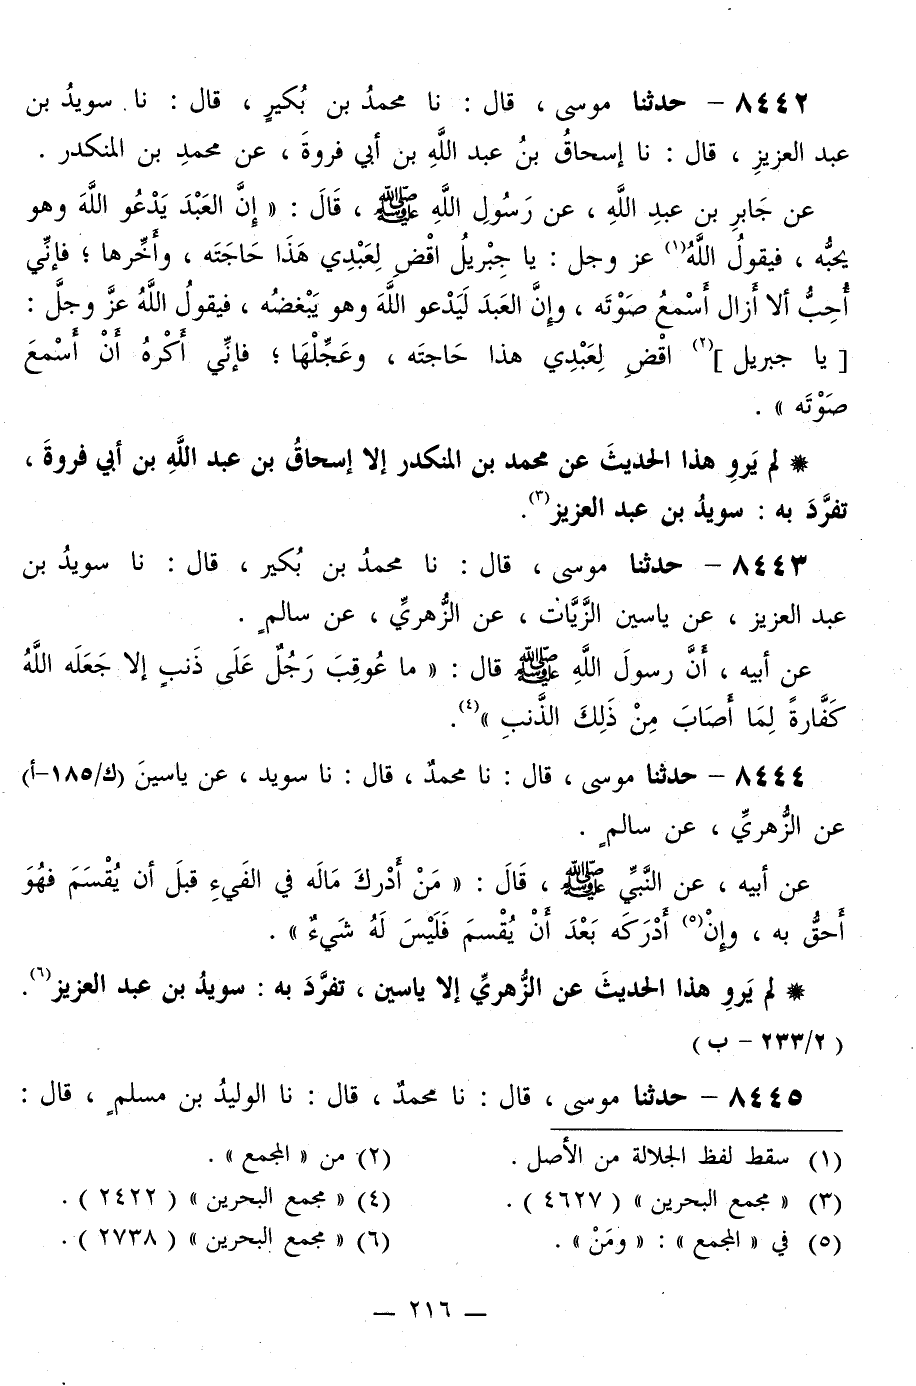 ٨٤٤٢ – حدثنا موسى ، قال : نا محمدُ بن بُكيرٍ ، قال : نا سويدُ بن
عبد العزيزِ ، قال : نا إسحاقُ بنُ عبد اللَّهِ بن أبي فروةَ ، عن محمدِ بن المنكدر .
عن جَابرِ بن عبدِ اللَّهِ ، عن رَسُولِ اللَّهِ ﷺ ، قَالَ : « إنَّ العَبْدَ يَدْعُو اللَّهَ وهو
يحبُّه ، فيقولُ اللَّهُ(١) عز وجل : يا جِبْريلُ اقْضِ لِعَبْدِي هَذَا حَاجَتَه ، وأَخِّرها ؛ فإنِّي
أُحِبُّ ألا أَزال أَسْمعُ صَوْتَه ، وإنَّ العَبدَ لَيَدْعو اللَّهَ وهو يَبْغضُه ، فيقولُ اللَّهُ عزَّ وجلَّ :
[ يا جبريل ](٢) اقْضِ لِعَبْدِي هذا حَاجتَه ، وعَجِّلْهَا ؛ فإنِّي أَكْرهُ أَنْ أَسْمعَ
صَوْتَه » .
* لم يَروِ هذا الحديثَ عن محمد بن المنكدر إلا إسحاقُ بن عبد اللَّهِ بن أبي فروةَ ،
تفرَّدَ به : سويدُ بن عبد العزيز(٣).
٨٤٤٣ – حدثنا موسى ، قال : نا محمدُ بن بُكير ، قال : نا سويدُ بن
عبد العزيز ، عن ياسين الزَّيَّات ، عن الزُّهريِّ ، عن سالمٍ .
عن أبيه ، أَنَّ رسولَ اللَّهِ ﷺ قال : « ما عُوقِبَ رَجُلٌ عَلَى ذَنبٍ إلا جَعَلَه اللَّهُ
كَفَّارةً لِمَا أَصَابَ مِنْ ذَلِكَ الذَّنبِ »(٤).
٨٤٤٤ – حدثنا موسى ، قال : نا محمدٌ ، قال : نا سويد ، عن ياسينَ (ك/١٨٥-أ)
عن الزُّهريِّ ، عن سالمٍ .
عن أبيه ، عن النَّبيِّ ﷺ ، قَالَ : « مَنْ أَدْركَ مَالَه في الفَيءِ قبلَ أن يُقْسَمَ فهُوَ
أَحقُّ به ، وإنْ(٥) أَدْرَكَه بَعْدَ أَنْ يُقْسمَ فَلَيْسَ لَهُ شَيءٌ » .
* لم يَروِ هذا الحديثَ عن الزُّهريِّ إلا ياسين ، تفرَّدَ به : سويدُ بن عبد العزيز(٦).
( ٢٣٣/٢ – ب )
٨٤٤٥ – حدثنا موسى ، قال : نا محمدٌ ، قال : نا الوليدُ بن مسلمٍ ، قال :
(١) سقط لفظ الجلالة من الأصل . (٢) من « المجمع » .
(٣) « مجمع البحرين » ( ٤٦٢٧ ) . (٤) « مجمع البحرين » ( ٢٤٢٢ ) .
(٥) في « المجمع » : « ومَنْ » . (٦) « مجمع البحرين » ( ٢٧٣٨ ) .
— ٢١٦ —